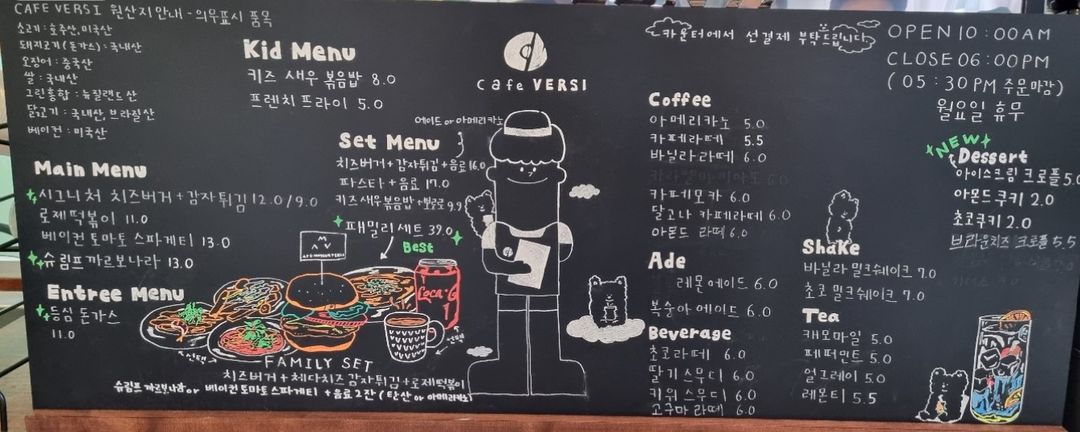 CAFE VERSI 원산지안내 - 의무표시 품목
소고기 : 호주산, 미국산
돼지고기(돈가스) : 국내산
오징어 : 중국산
쌀 : 국내산
그린홍합 : 뉴질랜드산
닭고기 : 국내산, 브라질산
베이컨 : 미국산
Kid Menu
키즈 새우 볶음밥 8.0
프렌치 프라이 5.0
Main Menu
시그니처 치즈버거+감자튀김 12.0/9.0
로제 떡볶이 11.0
베이컨 토마토 스파게티 13.0
슈림프 까르보나라 13.0
Entree Menu
등심 돈가스
11.0
에이드 or 아메리카노
Set Menu
치즈버거+감자튀김+음료 16.0
파스타+음료 17.0
키즈새우볶음밥+뽀로로 9.9
패밀리세트 39.0
Best
Coca-C
선택
선택
FAMILY SET
치즈버거+체다치즈감자튀김+로제떡볶이
슈림프 까르보나라 or 베이컨토마토스파게티 +음료2잔(탄산 or 아메리카노)
Cafe VERSI
카운터에서 선결제 부탁드립니다
OPEN 10:00AM
CLOSE 06:00PM
(05:30PM 주문마감)
월요일 휴무
Coffee
아메리카노 5.0
카페라떼 5.5
바닐라 라떼 6.0
카라멜마끼아또 6.0
카페모카 6.0
달고나 카페라떼 6.0
아몬드 라떼 6.0
Ade
레몬에이드 6.0
복숭아 에이드 6.0
Beverage
초코라떼 6.0
딸기스무디 6.0
키위 스무디 6.0
고구마 라떼 6.0
NEW
Dessert
아이스크림 크로플 5.0
아몬드쿠키 2.0
초코쿠키 2.0
브라운치즈 크로플 5.5
Shake
바닐라 밀크쉐이크 7.0
초코 밀크쉐이크 7.0
Tea
캐모마일 5.0
페퍼민트 5.0
얼그레이 5.0
레몬티 5.5